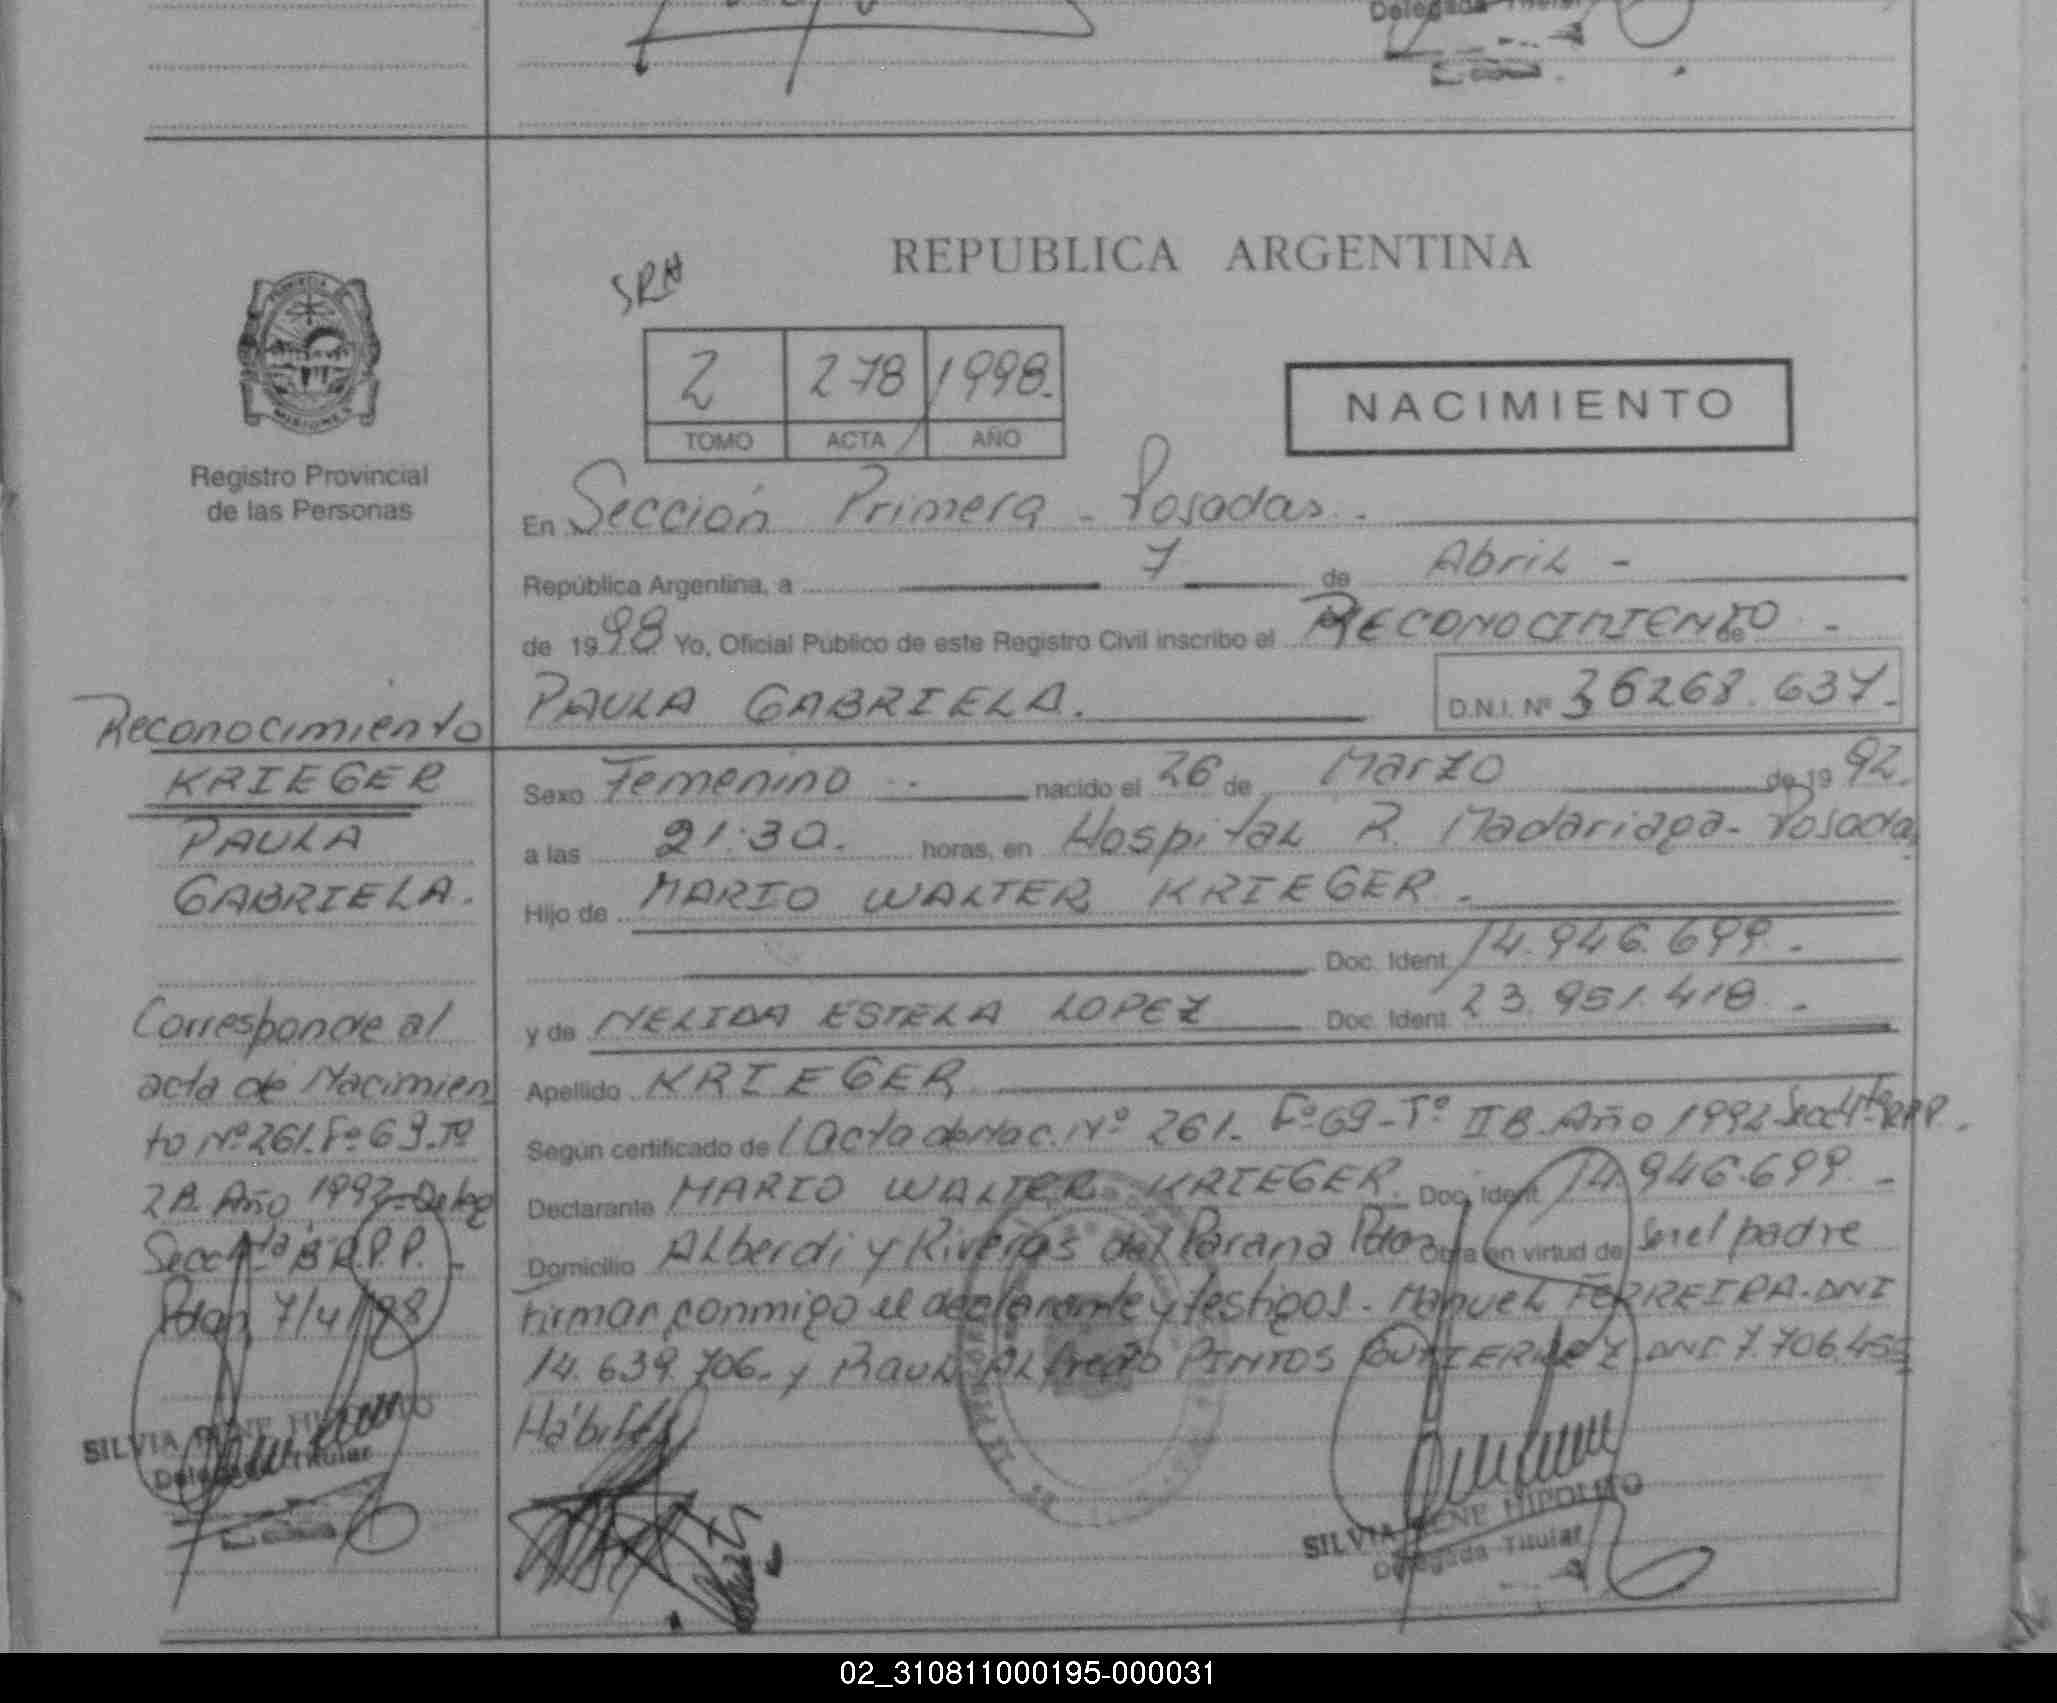 Delegada Titular
REPUBLICA ARGENTINA
SRH
2 278 1998.
TOMO ACTA AÑO
NACIMIENTO
Registro Provincial
de las Personas
En Sección Primera - Posadas.
República Argentina, a 7 de Abril -
de 1998 Yo, Oficial Público de este Registro Civil inscribo el RECONOCIMIENTO - de
PAULA GABRIELA. D.N.I. Nº 36268.637.-
Reconocimiento
KRIEGER
PAULA
GABRIELA.
Corresponde al
acta de Nacimien
to Nº 261. Fº 69. Tº
2B. Año 1992
Secc 4ta B R.P.P. -
Pdas 7/4/98
SILVIA IRENE HIPOLITO
Delegada Titular
Sexo Femenino - nacido el 26 de Marzo de 1992.
a las 21:30. horas, en Hospital R. Madariaga - Posadas
Hijo de MARIO WALTER KRIEGER.
Doc. Ident. 14.946.699.-
y de NELIDA ESTELA LOPEZ Doc. Ident. 23.951.418.-
Apellido KRIEGER
Según certificado de Acta de Nac. Nº 261. Fº 69 - Tº II B. Año 1992 Secc 4ta R.P.P.
Declarante MARIO WALTER KRIEGER. Doc. Ident. 14.946.699.-
Domicilio Alberdi y Riveras del Parana Pdas Obra en virtud de Ser el padre
firman conmigo el declarante y testigos. Manuel FERREIRA - DNI
14.639.706. y Raul Alfredo PINTOS GUTIERREZ DNI 7.706.455
Hábiles
SILVIA IRENE HIPOLITO
Delegada Titular
02_310811000195-000031